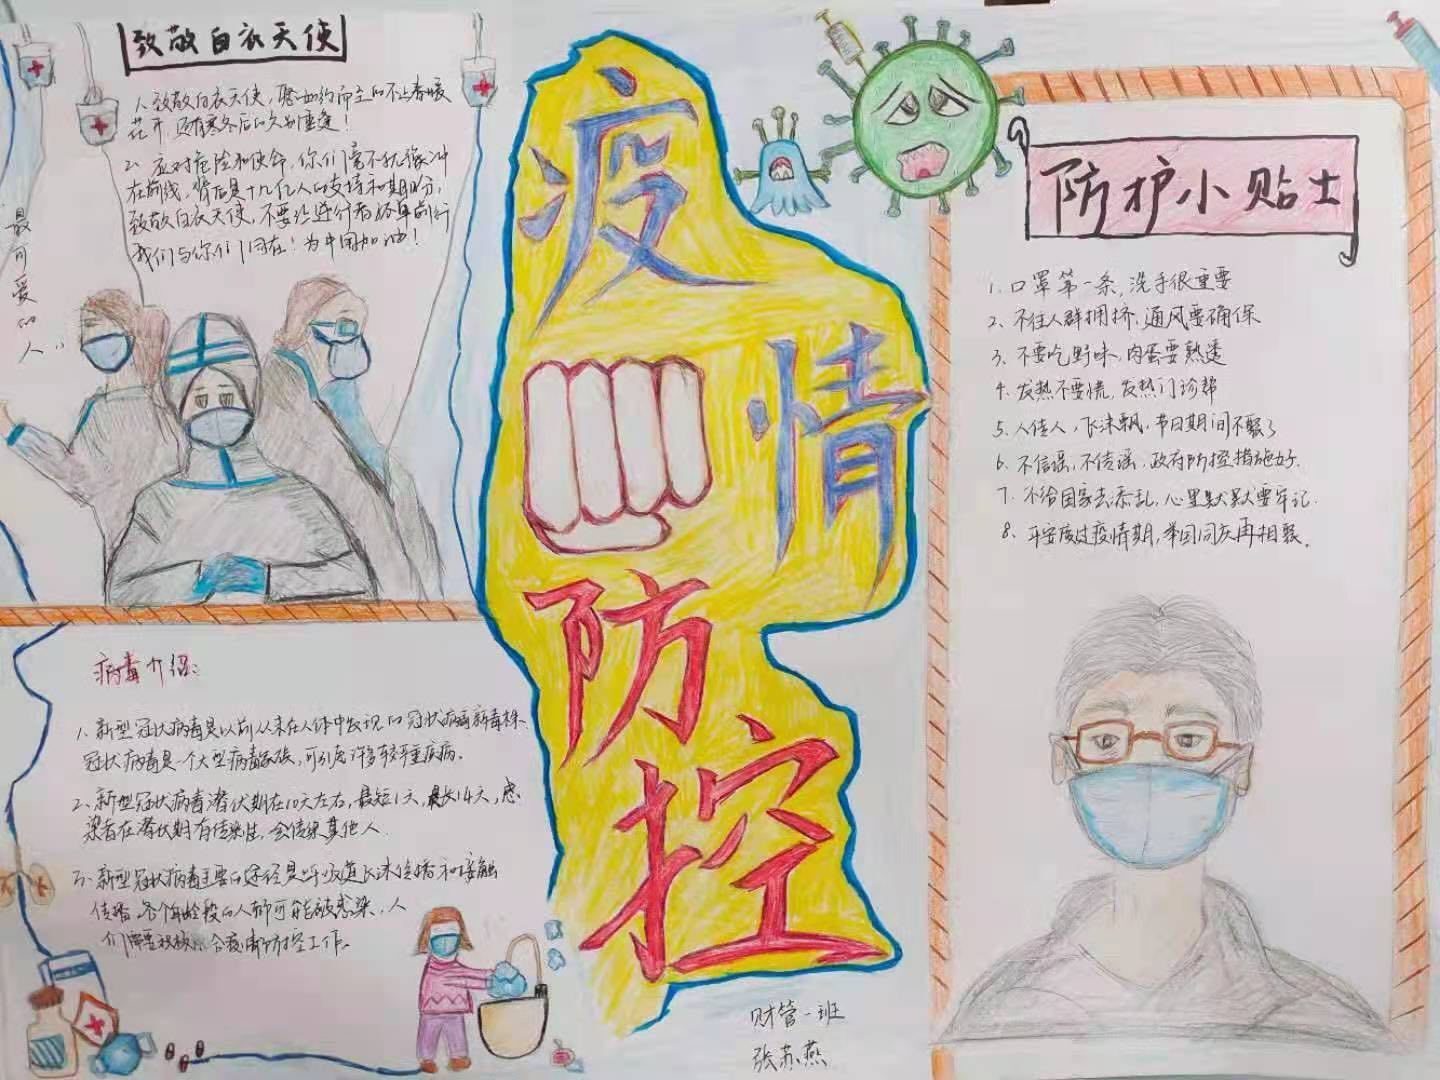 致敬白衣天使
1、致敬白衣天使,愿如约而至的不止春暖
花开,还有寒冬后的久别重逢!
2、应对危险和使命,你们毫不犹豫冲
在前线,背后是十几亿人的支持和期盼,
致敬白衣天使,不要让逆行者孤单前行
我们与你们同在!为中国加油!
最可爱的人
疫情
防控
防护小贴士
1、口罩第一条,洗手很重要
2、不往人群拥挤,通风要确保
3、不要吃野味,肉蛋要熟透
4、发热不要慌,发热门诊帮
5、人传人,飞沫飘,节日期间不聚了
6、不信谣,不传谣,政府防控措施好.
7、不给国家去添乱,心里默默要牢记.
8、平安度过疫情期,举国同庆再相聚。
病毒介绍:
1、新型冠状病毒是以前从未在人体中发现的冠状病毒新毒株、
冠状病毒是一个大型病毒家族,可引起许多较严重疾病。
2、新型冠状病毒潜伏期在10天左右,最短1天,最长14天,感
染者在潜伏期有传染性,会传染其他人.
3、新型冠状病毒主要的途径是呼吸道飞沫传播和接触
传播,各个年龄段的人都可能被感染,人
们需要积极配合疫情防控工作。
财管一班
张苏燕